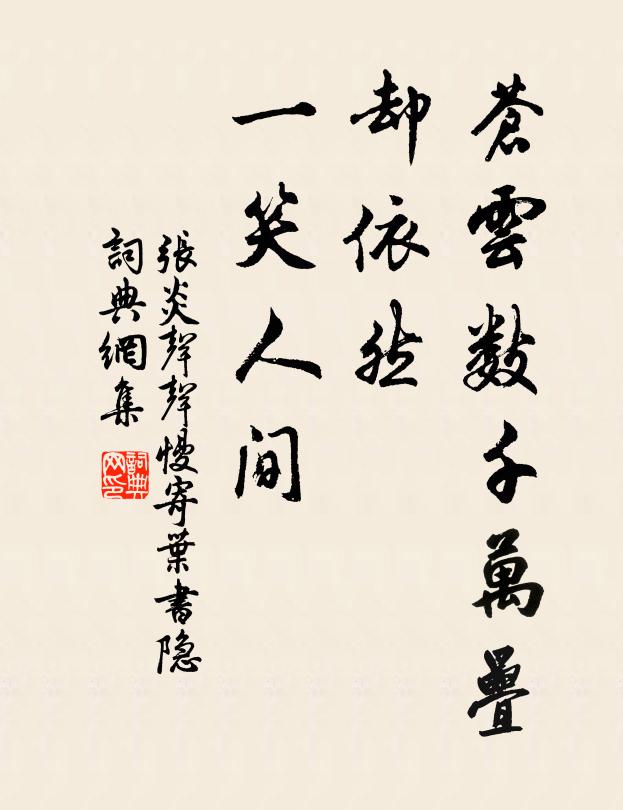 蒼雲數千萬疊
却依然
一笑人间
張炎聲聲慢寄葉書隐
詞典網集
詞典網印